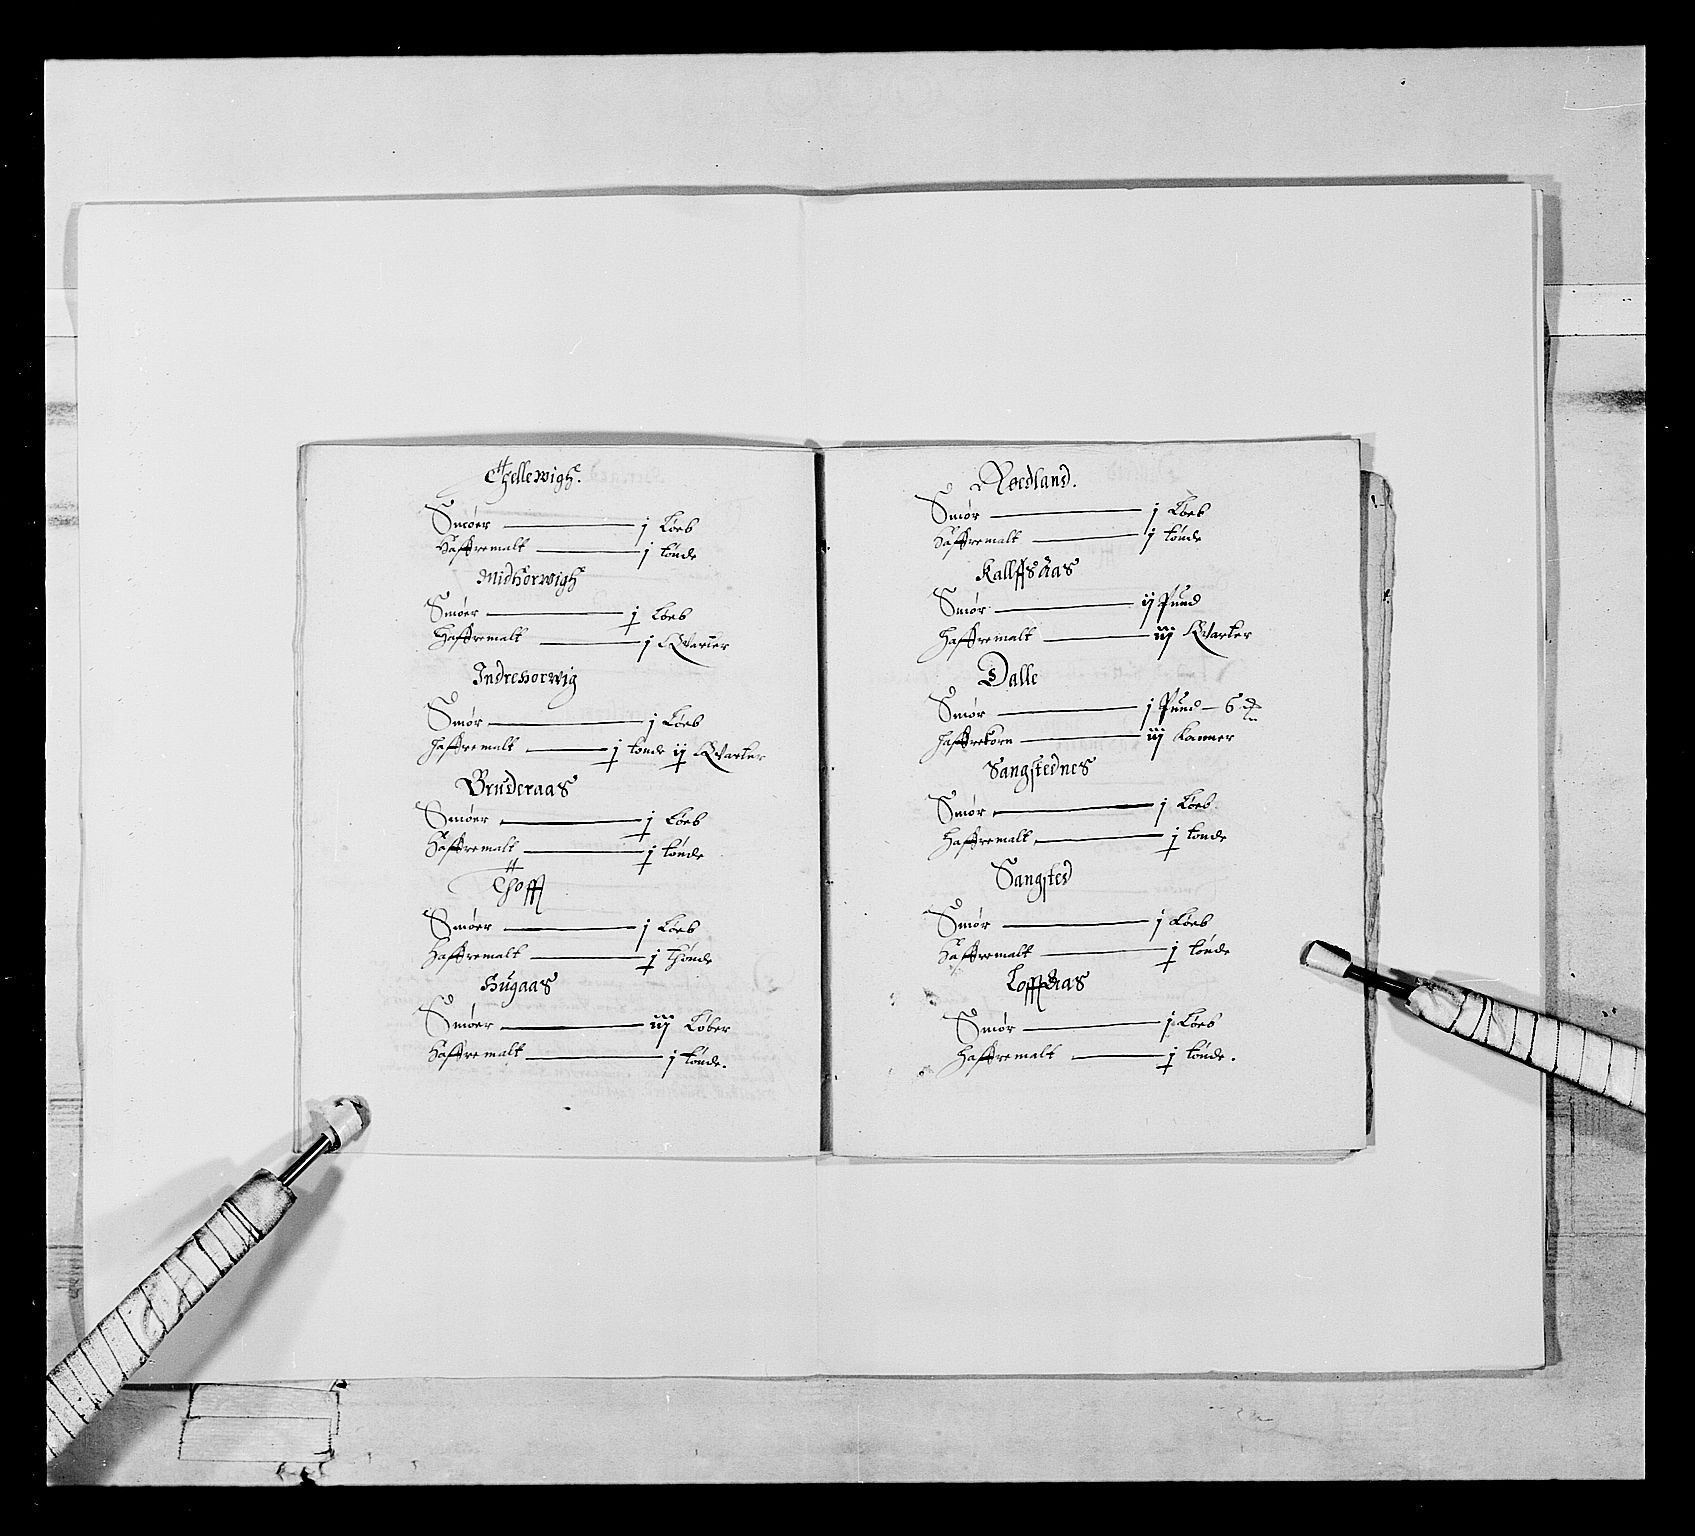 Thellewigh.
Smøer j Løeb
Haffremalt j tønde
Midhorwigh
Smøer j Løeb
Haffremalt j Qvarter
Indrehorwig
Smør j Løeb
haffremalt j tønde ij Qvarter
Bruderaas
Smøer j Løeb
Haffremalt j tønde
Thofft
Smøer j Løeb
Haffremalt j thønde
Hugaas
Smøer iij Løber
Haffremalt j tønde.
Røedland.
Smør j Løeb
Haffremalt j tønde
Kallffsaas
Smør ij Pund
haffremalt iij Qvarter
Dalle
Smør j Pund 6
haffrekorn iij Kanner
Sangstednes
Smør j Løeb
Haffremalt j tønde
Sangsted
Smør j Løeb
Haffremalt j tønde
Smør j Løeb
haffremalt j tønde.